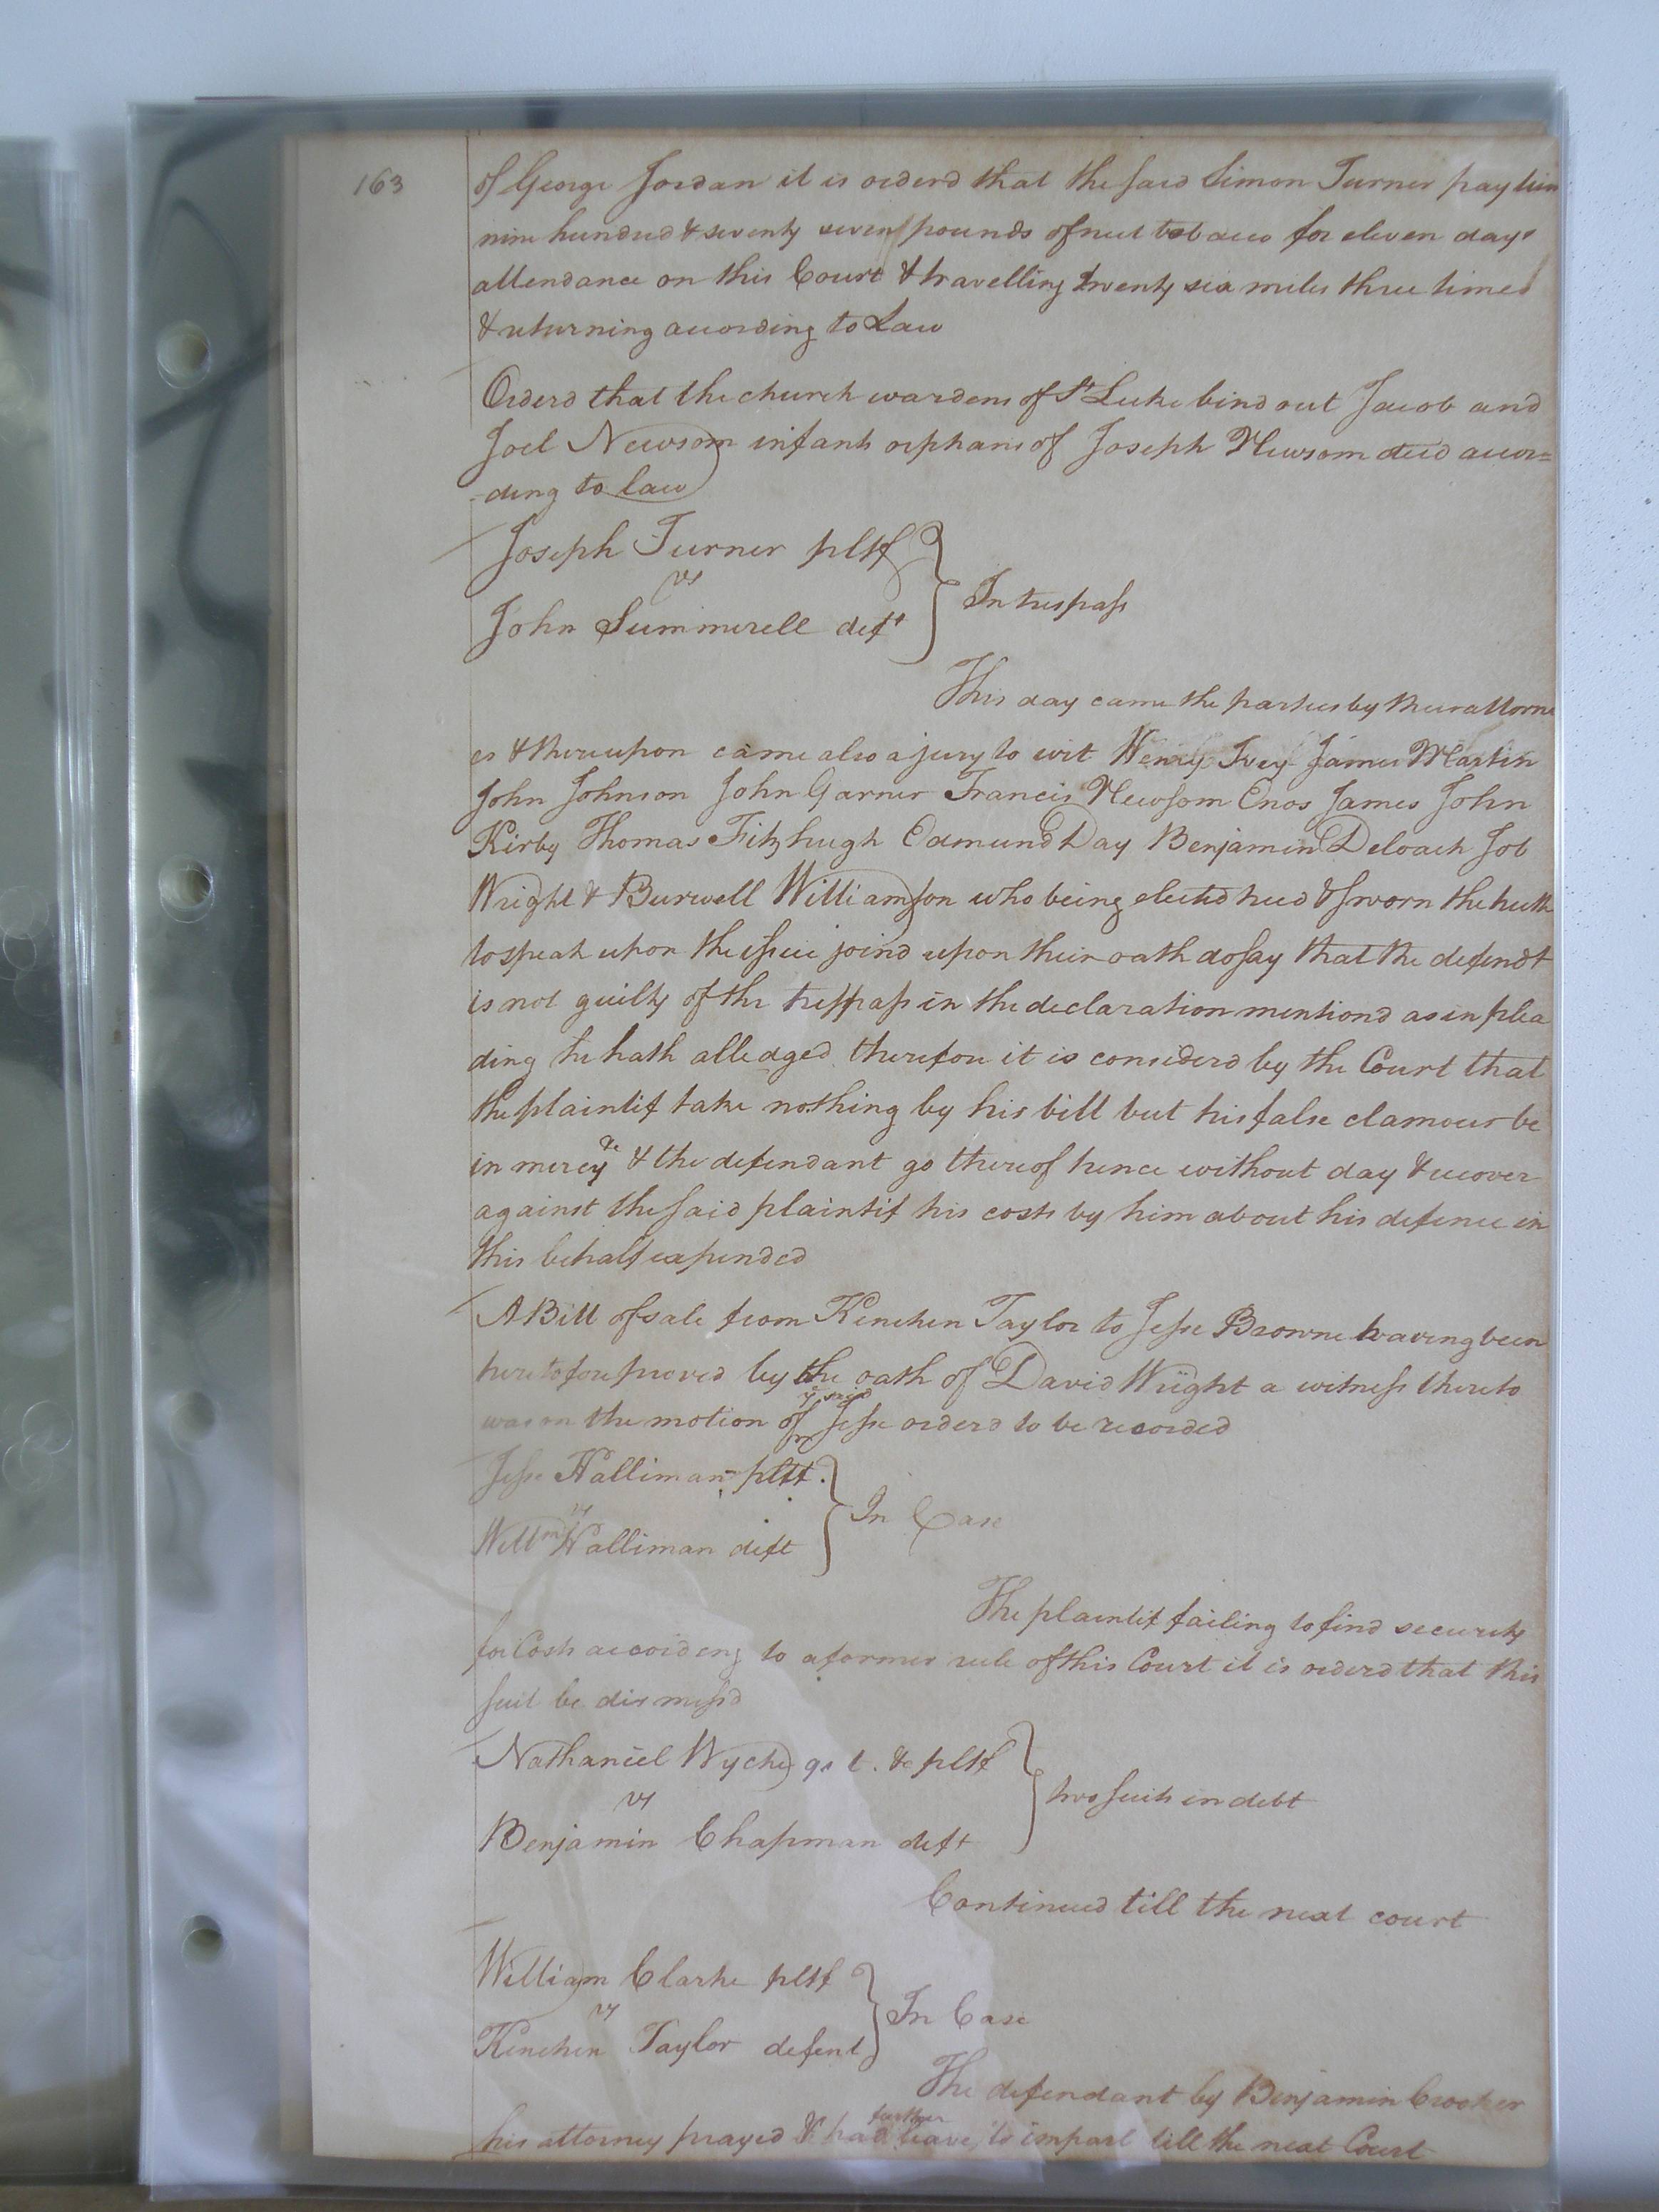 163
of George Jordan it is orderd that the said Simon Turner pay him
nine hundred & seventy seven pounds of neet tobacco for eleven days
attendance on this Court & travelling twenty six miles three times
& returning according to Law
Orderd that the church wardens of St Luke bind out Jacob and
Joel Newsom infants orphans of Joseph Newsom decd accor=
-ding to law
Joseph Turner pltf
vs
John Summerell deft
In trespass
This day came the parties by their attorne
es & thereupon came also a jury to wit Henry Ivey James Martin
John Johnson John Garner Francis Newsom Enos James John
Kirby Thomas Fitzhugh Edmund Day Benjamin Deloach Job
Wright & Burwell Williamson who being elected tried & sworn the truth
to speak upon the issue joind upon their oath do say that the defendt
is not guilty of the tresspass in the declaration mentiond as in plea
ding he hath alledged therefore it is considerd by the Court that
the plaintif take nothing by his bill but his false clamour be
in mercy &c & the defendant go thereof hence without day & recover
against the said plaintif his costs by him about his defence in
this behalf expended
A Bill of sale from Kenchen Taylor to Jesse Browne having been
heretofore proved by the oath of David Wright a witness thereto
was on the motion of ye said Jesse orderd to be recorded
Jesse Halliman pltf.
vs
Willm Halliman deft
In Case
The plaintif failing to find security
for Costs according to a former rule of this Court it is orderd that this
suit be dismissd
Nathaniel Wyche q. t. &c pltf
vs
Benjamin Chapman deft
two suits in debt
Continued till the next court
William Clarke pltf
vs
Kenchen Taylor defent
In Case
The defendant by Benjamin Crooker
his attorney prayed & had further leave to imparl till the next Court